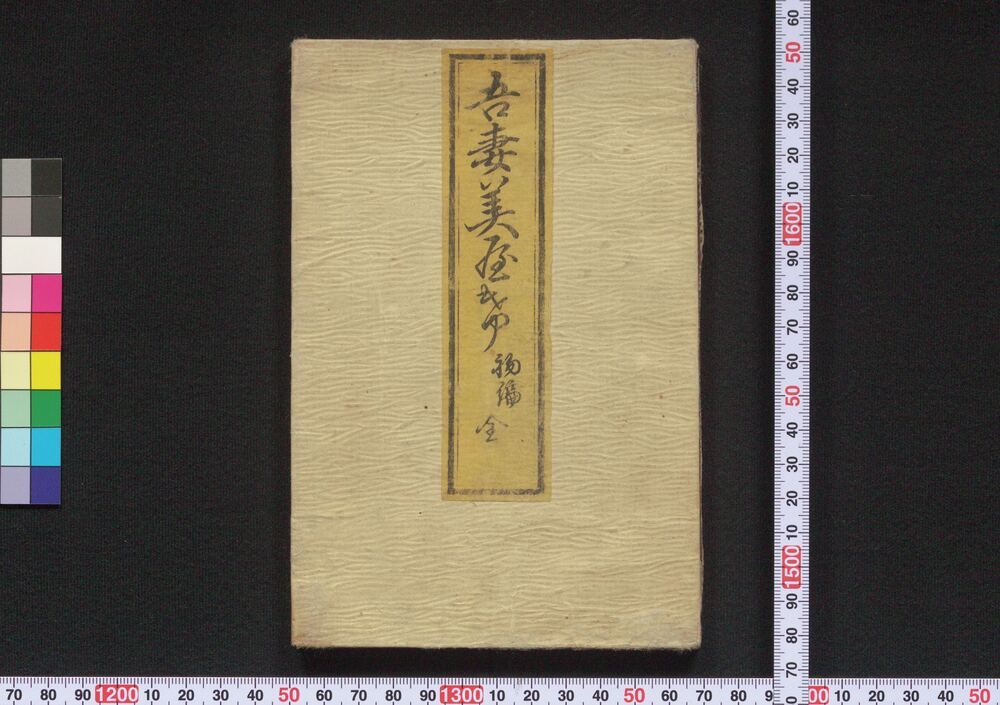 吾妻美屋計
初編
全
60
50
40
30
20
10
1600
90
80
70
60
50
40
30
20
10
1500
90
80
70
0
70 80 90 1200 10 20 30 40 50 60 70 80 90 1300 10 20 30 40 50 60 70 80 9 00 10 20 30 40 50